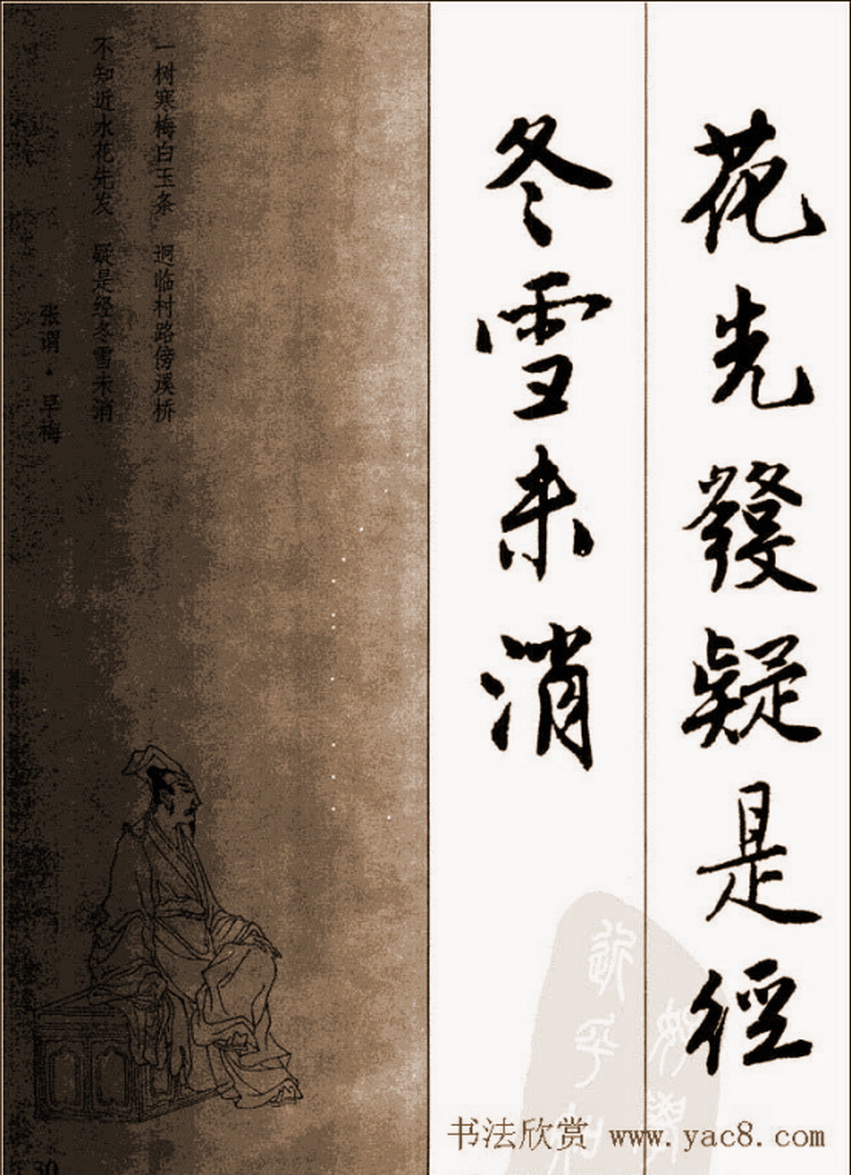 花先發疑是經
冬雪未消
一树寒梅白玉条 迥临村路傍溪桥
不知近水花先发 疑是经冬雪未消
张谓·早梅
30
书法欣赏 www.yac8.com